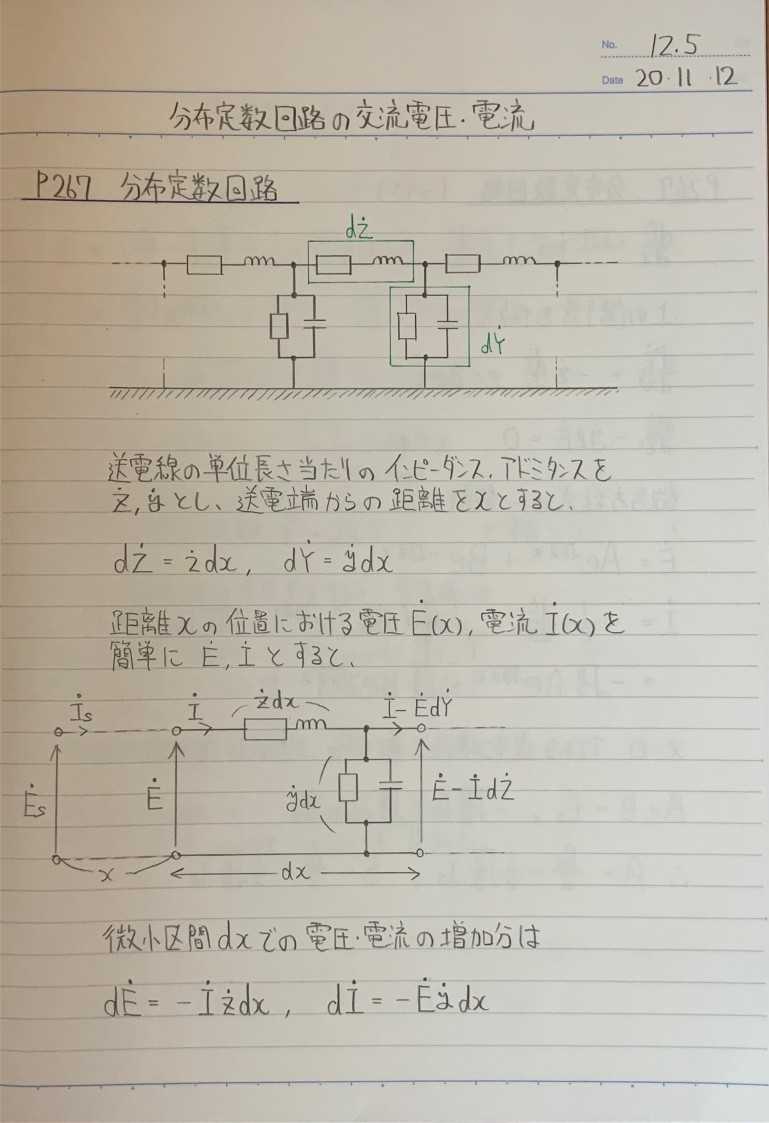 No. 12.5
Date 20・11・12
分布定数回路の交流電圧・電流
P267 分布定数回路
dŻ
dẎ
送電線の単位長さ当たりのインピーダンス,アドミタンスを
ż,ẏとし、送電端からの距離をxとすると、
dŻ = żdx, dẎ = ẏdx
距離xの位置における電圧Ė(x),電流İ(x)を
簡単に Ė,İ とすると、
İs İ żdx İ-ĖdẎ
Ės Ė ẏdx Ė-İdŻ
x dx
微小区間dxでの電圧・電流の増加分は
dĖ = -İżdx, dİ = -Ėẏdx